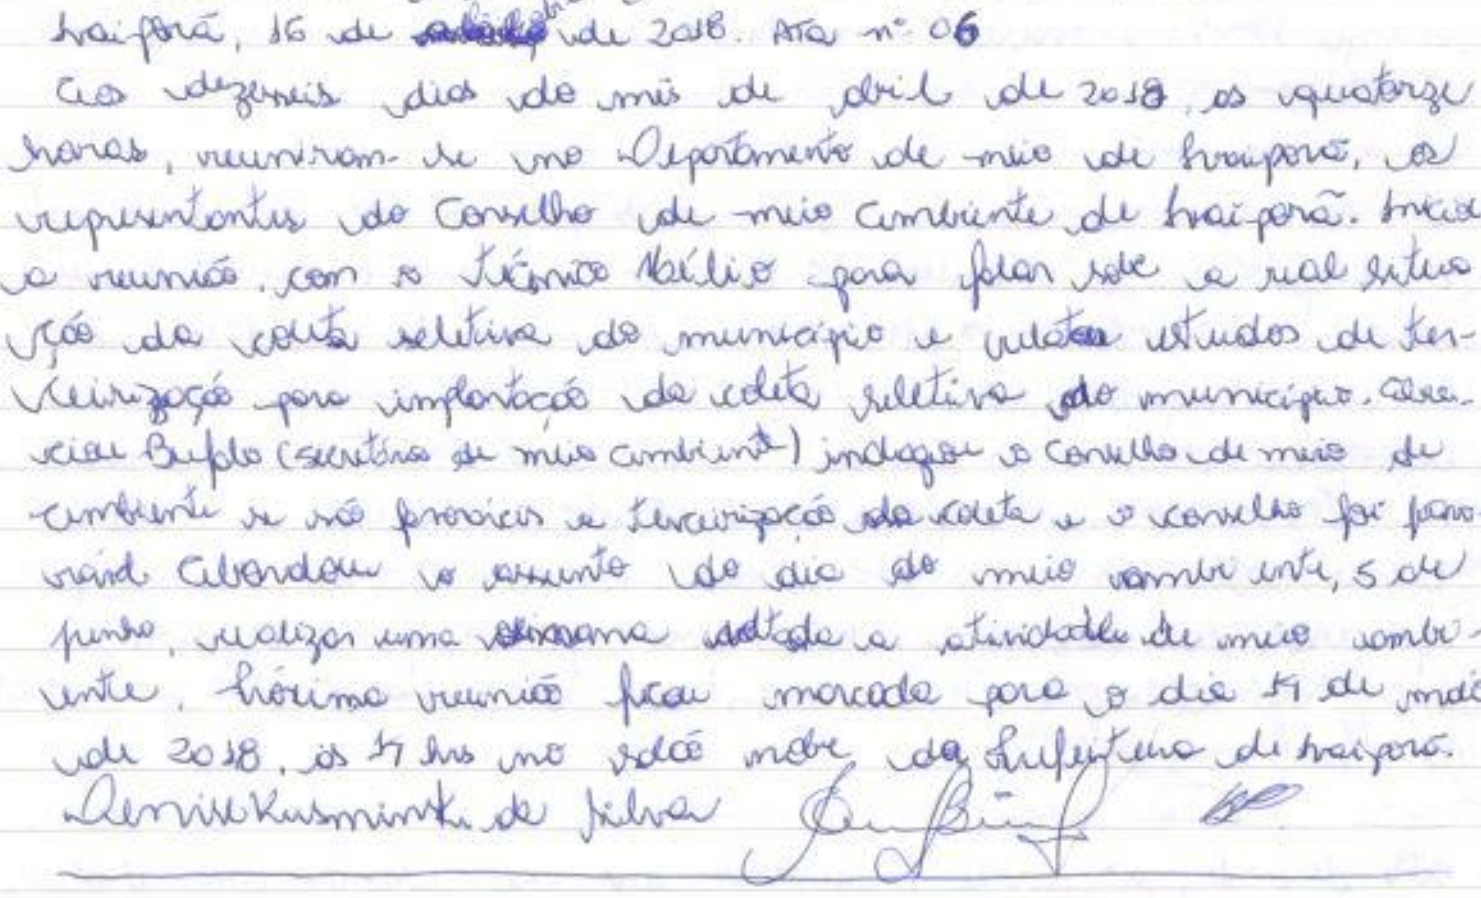 Ivaiporã, 16 de de 2018. Ata nº 06
Aos dezesseis dias do mês de abril de 2018, as quatorze
horas, reuniram-se no Departamento de meio de Ivaiporã, os
representantes do Conselho de meio Ambiente de Ivaiporã. Inicia
a reunião, com o técnico para falar sobe a real situa
ção da coleta seletiva do município e estudos de ter-
ceirização para implantação da coleta seletiva do município.
Bufalo (secretário de meio ambiente) indagou o Conselho de meio de
ambiente se são a terceirização da coleta e o conselho foi favo
rável Abordou o assunto do dia do meio ambiente, 5 de
junho, realizar uma semana voltada a atividades de meio ambi-
ente. Próxima reunião ficou marcada para o dia 14 de maio
de 2018, as 14 hrs no salão nobre da Prefeitura de Ivaiporã.
Denise Kusminski da Silva